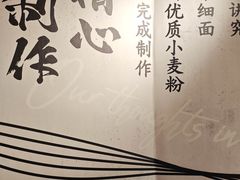 讲究
细面
优质小麦粉
完成制作
精心
制作